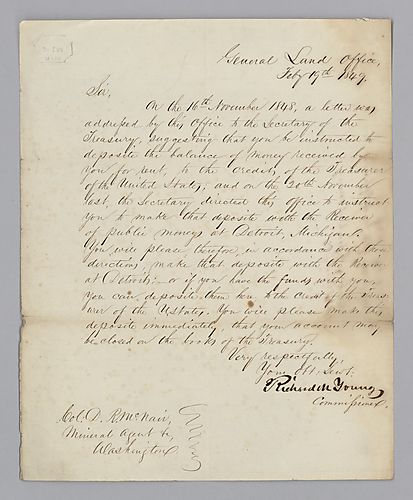 General Land Office,
Feby 19th 1849.
Sir,
On the 16th November 1848, a letter was
addressed by this Office to the Secretary of the
Treasury, suggesting that you be instructed to
deposite the balance of money received by
you for rent, to the Credit of the Treasurer
of the United States, and on the 20th November
last, the Secretary directed this office to instruct
you to make that deposite with the Receiver
of public moneys at Detroit, Michigan.
You will please therefore, in accordance with those
directions, make that deposite with the Receiver
at Detroit;—or if you have the funds with you,
you can deposite them here to the credit of the Treas-
urer of the UStates. You will please make this
deposite immediately, that your account may
be closed on the books of the Treasury.
Very respectfully,
Your Obt. Servt.
Richard M Young
Commissioner.
Col. D. R. McNair,
Mineral Agent &c,
Washington